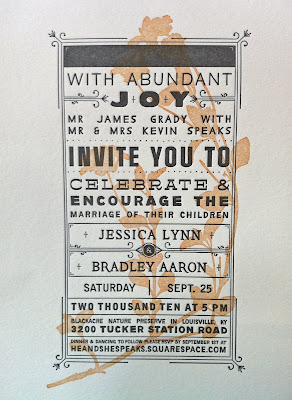 WITH ABUNDANT
JOY
MR JAMES GRADY WITH
MR & MRS KEVIN SPEAKS
INVITE YOU TO
CELEBRATE &
ENCOURAGE THE
MARRIAGE OF THEIR CHILDREN
JESSICA LYNN
&
BRADLEY AARON
SATURDAY SEPT. 25
TWO THOUSAND TEN AT 5 PM
BLACKACRE NATURE PRESERVE IN LOUISVILLE, KY
3200 TUCKER STATION ROAD
DINNER & DANCING TO FOLLOW. PLEASE RSVP BY SEPTEMBER 1ST AT
HEANDSHESPEAKS.SQUARESPACE.COM